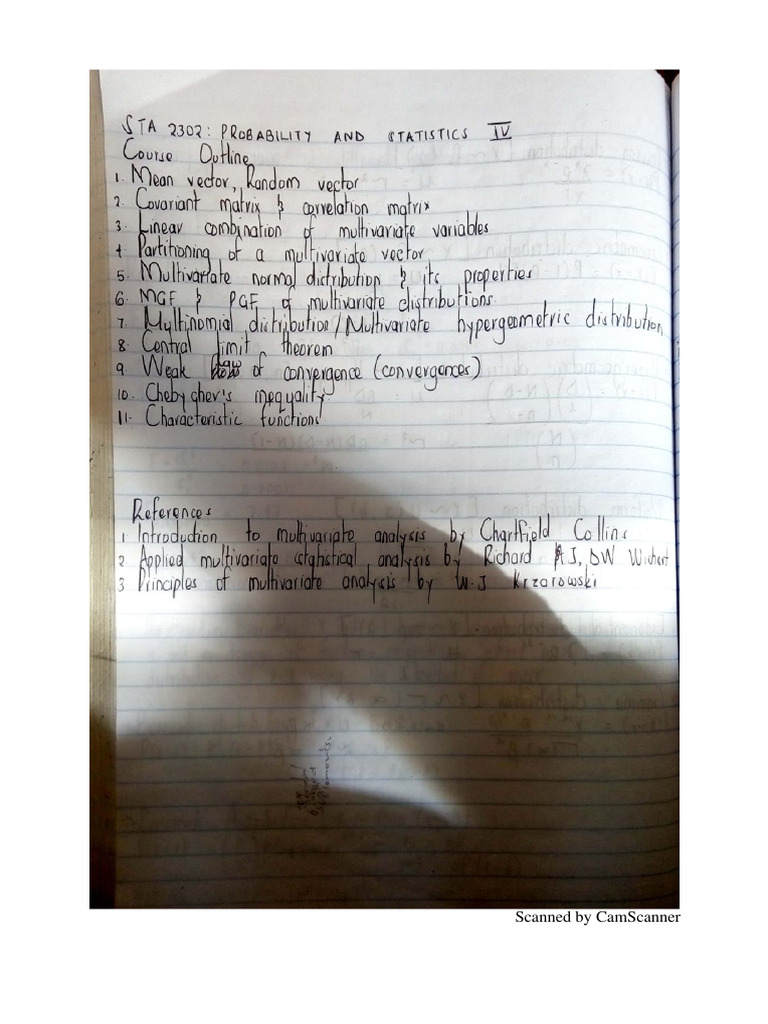 STA 2302: PROBABILITY AND STATISTICS IV
Course Outline
1. Mean vector, Random vector
2. Covariant matrix & correlation matrix
3. Linear combination of multivariate variables
4 Partitioning of a multivariate vector
5. Multivariate normal distribution & its properties
6. MGF & PGF of multivariate distributions.
7. Multinomial distribution/Multivariate hypergeometric distribution
8. Central limit theorem
9. Weak law of convergence (convergences)
10. Chebyghev's inequality
11. Characteristic functions
References
1. Introduction to multivariate analysis by Chartfield Collins
2. Applied multivariate statistical analysis by Richard A J, DW Wichert
3 Principles of multivariate analysis by W.J Krzarowski
Scanned by CamScanner